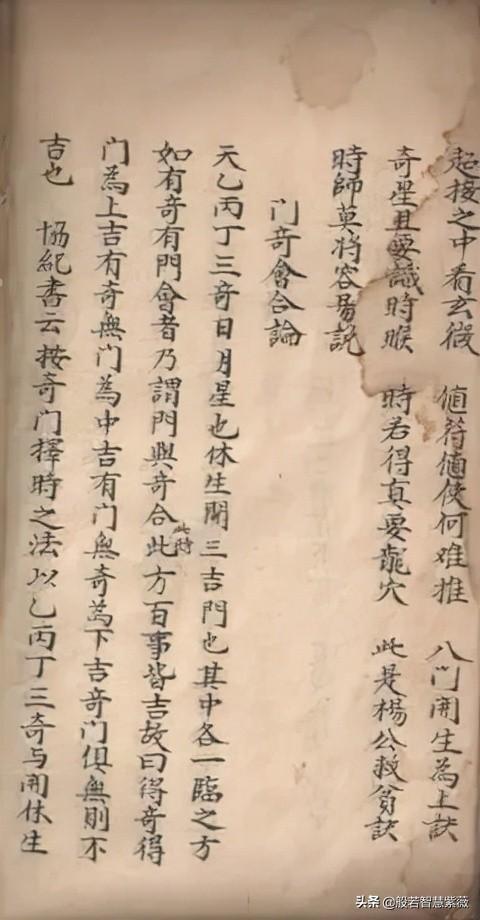 超接之中看玄微 値符値使何难推 八门開生為上訣
奇星且要識時候 時若得真要龍穴 此是楊公救貧訣
時師莫将容易説
门奇會合論
天乙丙丁三奇日月星也休生開三吉門也其中各一臨之方
如有奇有門會者乃謂門與奇合此時此方百事皆吉故曰得奇得
门為上吉有奇無门為中吉有门無奇為下吉奇门俱無則不
吉也 協紀書云按奇门擇時之法以乙丙丁三奇与開休生
头条 @般若智慧紫薇